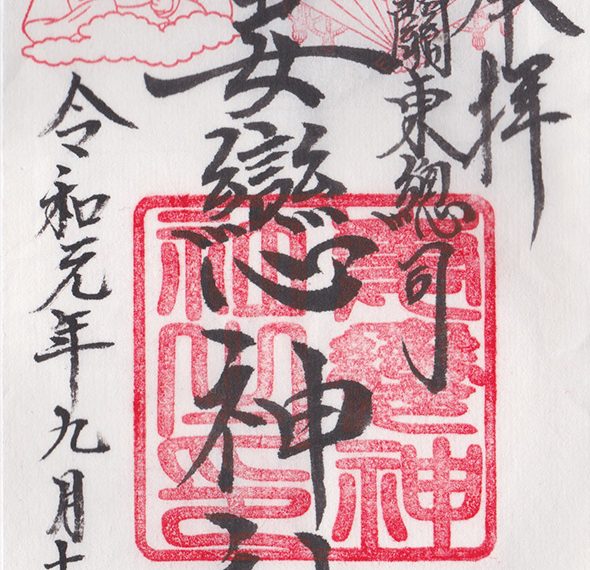 奉拝
關東總司
妻戀神社
令和元年九月十
妻戀神
社之印